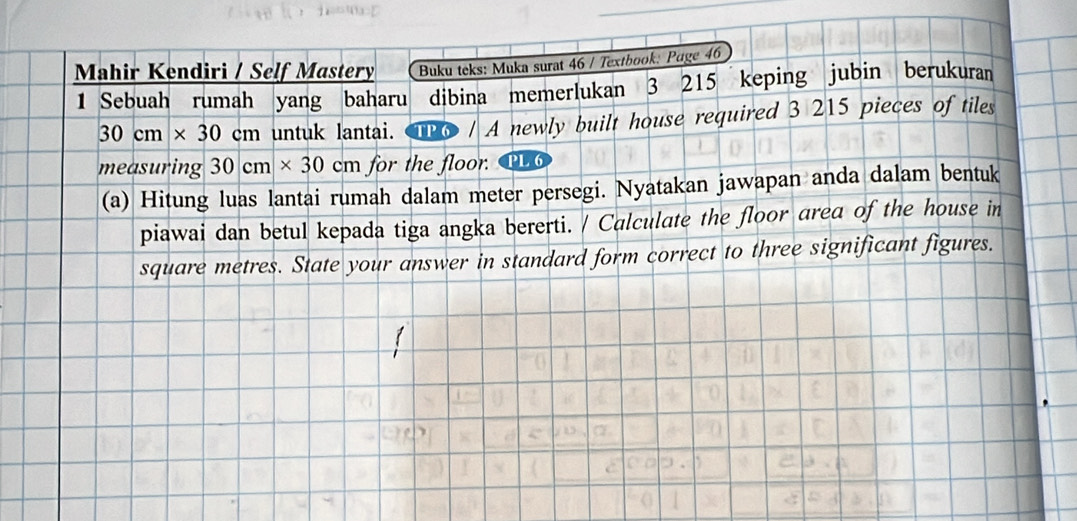 Mahir Kendiri / Self Mastery Buku teks: Muka surat 46 / Textbook: Page 46
1 Sebuah rumah yang baharu dibina memerlukan 3 215 keping jubin berukuran
30 cm × 30 cm untuk lantai. TP 6 / A newly built house required 3 215 pieces of tiles
measuring 30 cm × 30 cm for the floor. PL 6
(a) Hitung luas lantai rumah dalam meter persegi. Nyatakan jawapan anda dalam bentuk
piawai dan betul kepada tiga angka bererti. / Calculate the floor area of the house in
square metres. State your answer in standard form correct to three significant figures.